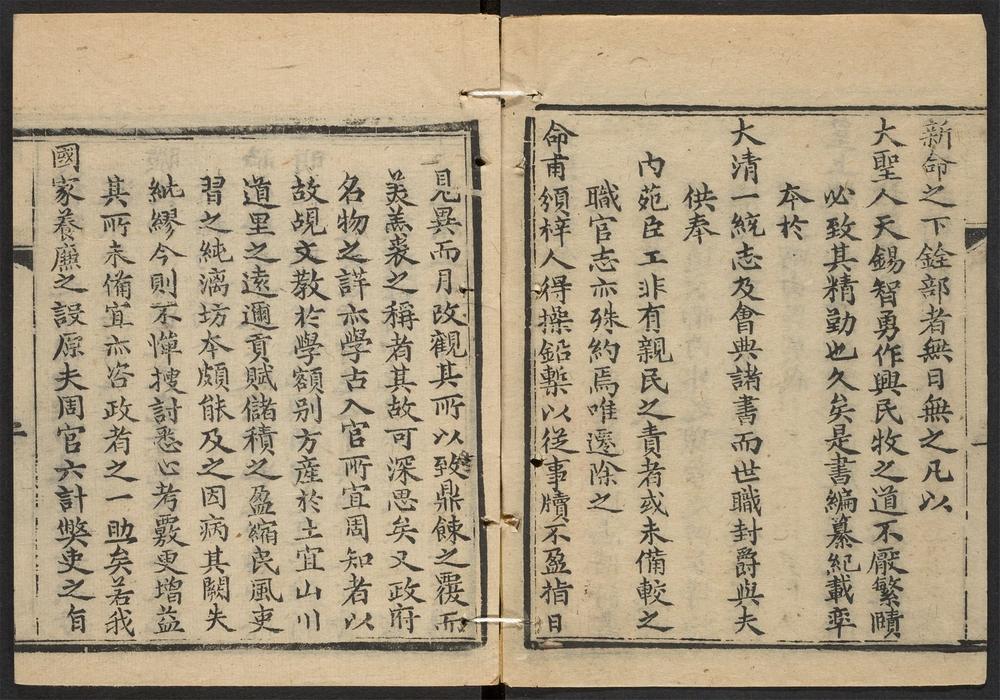 新命之下銓部者無日無之凡以
大聖人天錫智勇作興民牧之道不厭繁賾
必致其精勤也久矣是書編纂紀載率
本於
大清一統志及會典諸書而世職封爵與夫
供奉
內苑臣工非有親民之責者或未備較之
職官志亦殊約焉唯遷除之
命甫頒梓人得操鉛槧以從事牘不盈指日
一見異而月改觀其所以致鼎餗之覆而
美羔裘之稱者其故可深思矣又政府
名物之詳亦學古入官所宜周知者以
故覘文教於學額别方產於土宜山川
道里之遠邇貢賦儲積之盈縮民風吏
習之純漓坊本頗能及之因病其闕失
紕繆今則不憚搜討悉心考覈更增益
其所未備宜亦咨政者之一助矣若我
國家養廉之設原夫周官六計獘吏之旨
二